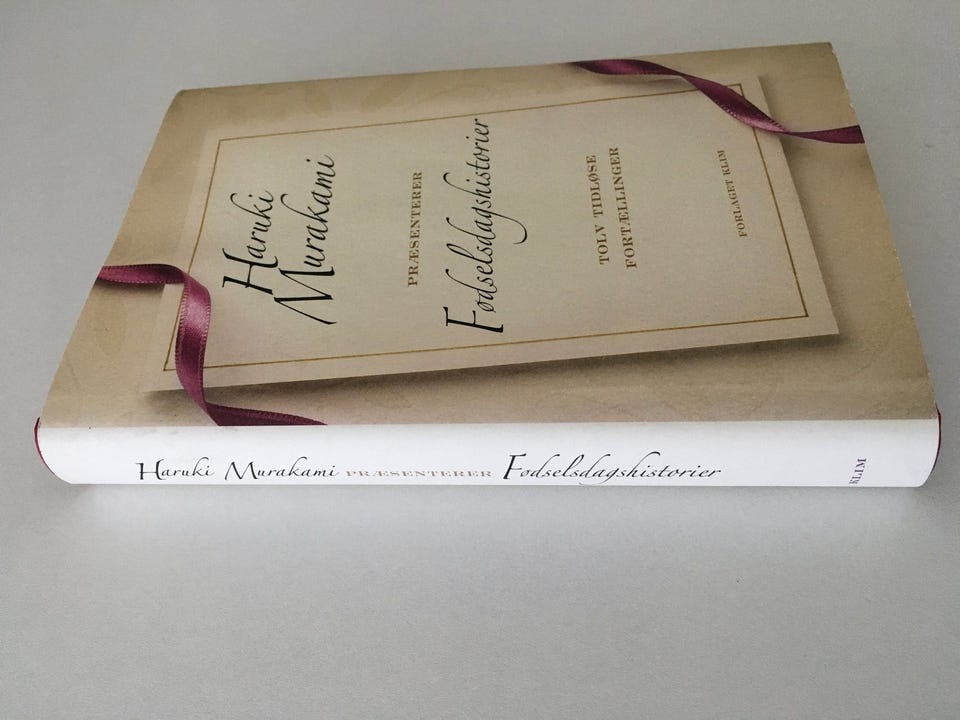 Haruki
Murakami
PRÆSENTERER
Fødselsdagshistorier
TOLV TIDLØSE
FORTÆLLINGER
FORLAGET KLIM
Haruki Murakami PRÆSENTERER Fødselsdagshistorier
KLIM